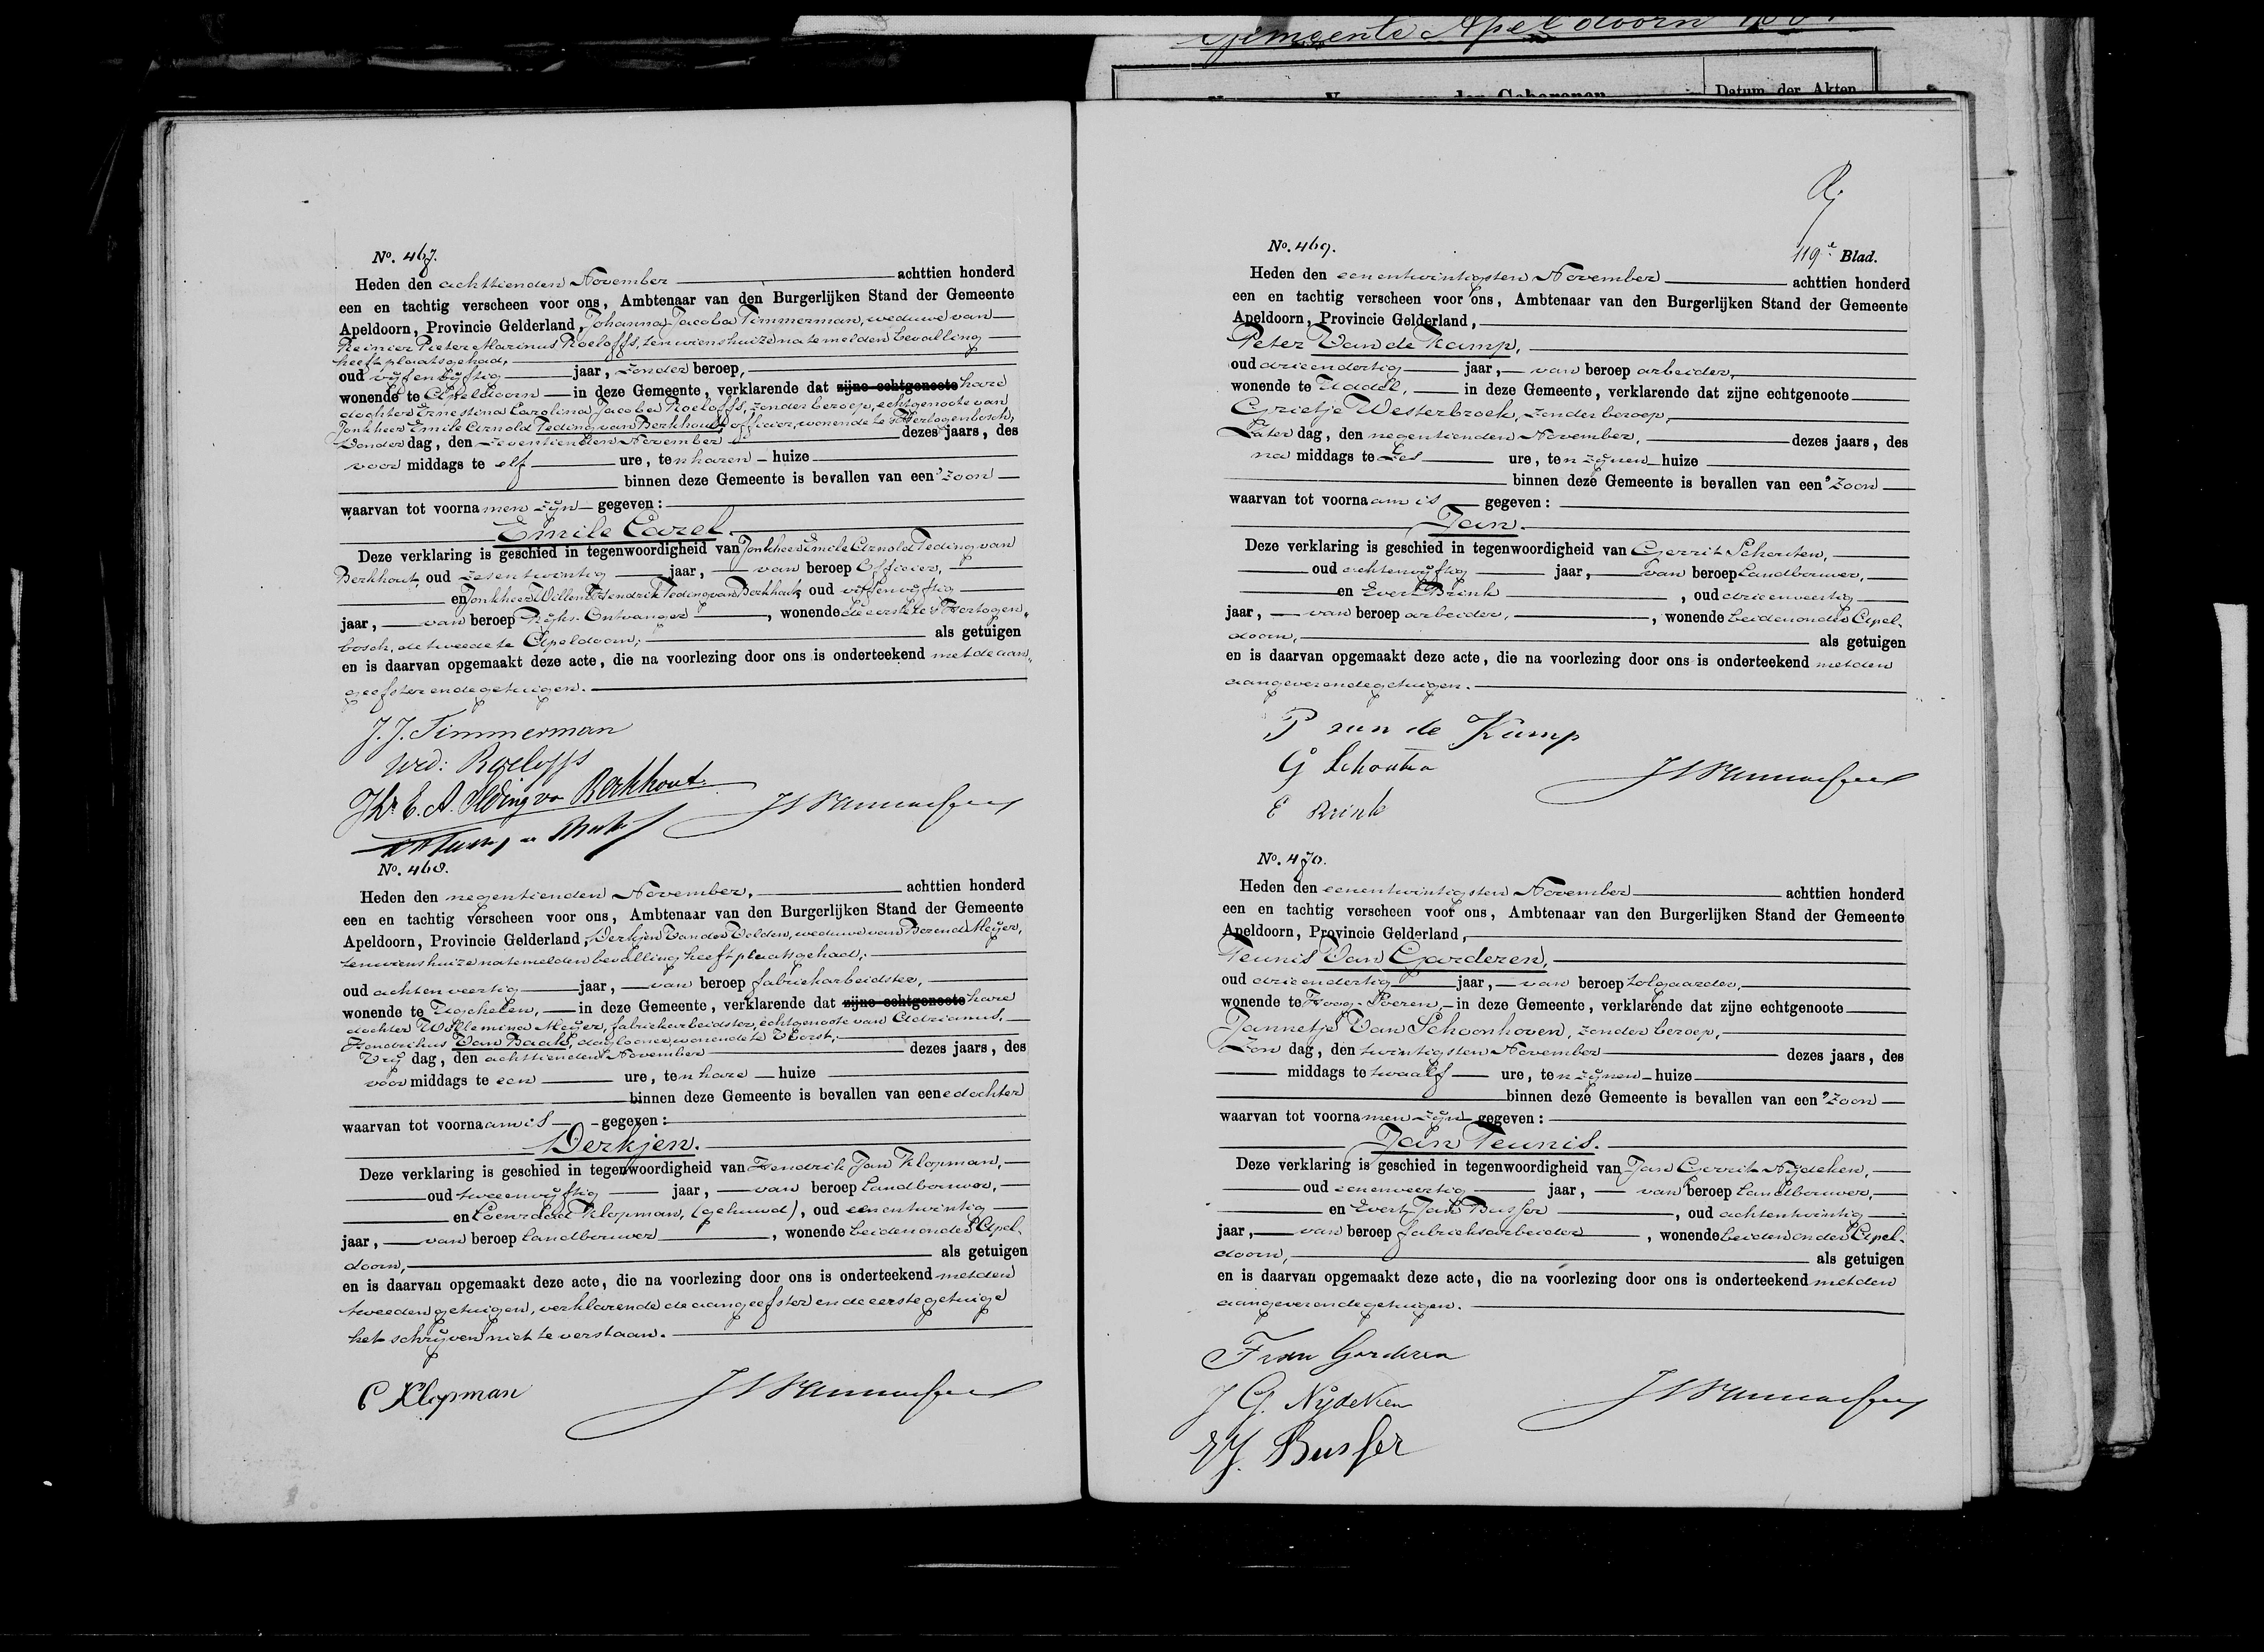 Gemeente Apeldoorn
Datum der Akten
No. 467.
Heden den achttienden November achttien honderd
een en tachtig verscheen voor ons, Ambtenaar van den Burgerlijken Stand der Gemeente
Apeldoorn, Provincie Gelderland, Johanna Jacoba Timmerman, weduwe van
Reinier Pieter Marinus Roeloffs, ten wiens huize na te melden bevalling
heeft plaats gehad,
oud vijfenvijftig jaar, zonder beroep,
wonende te Apeldoorn in deze Gemeente, verklarende dat zijne echtgenoote hare
dochter Ernestina Carolina Jacoba Roeloffs, zonder beroep, echtgenoote van
Jonkheer Emile Arnold Teding van Berkhout, officier, wonende te 's Hertogenbosch,
Donder dag, den zeventienden November dezes jaars, des
voor middags te elf ure, ten haren huize
binnen deze Gemeente is bevallen van een' zoon
waarvan tot voornamen zijn gegeven:
Emile Carel.
Deze verklaring is geschied in tegenwoordigheid van Jonkheer Emile Arnold Teding van
Berkhout, oud zesentwintig jaar, van beroep Officier,
en Jonkheer Willem Hendrik Teding van Berkhout, oud vijfenvijftig
jaar, van beroep Rijks-Ontvanger, wonende de eerste te 's Hertogen-
bosch, de tweede te Apeldoorn; als getuigen
en is daarvan opgemaakt deze acte, die na voorlezing door ons is onderteekend met de aan-
geefster en de getuigen.
J. J. Timmerman
wed: Roeloffs
Jhr. E. A. Teding van Berkhout.
No. 468.
Heden den negentienden November, achttien honderd
een en tachtig verscheen voor ons, Ambtenaar van den Burgerlijken Stand der Gemeente
Apeldoorn, Provincie Gelderland, Derkjen Van der Velden, weduwe van Berend Meijer,
ten wiens huize na te melden bevalling heeft plaats gehad;
oud achtenveertig jaar, van beroep fabriekarbeidster,
wonende te Ugchelen, in deze Gemeente, verklarende dat zijne echtgenoote hare
dochter Willemina Meijer, fabriekarbeidster, echtgenoote van Adrianus
Hendrikus Van Baak, daglooner, wonende te Voorst,
Vrij dag, den achttienden November dezes jaars, des
voor middags te een ure, ten hare huize
binnen deze Gemeente is bevallen van eene dochter
waarvan tot voornaam is gegeven:
Derkjen.
Deze verklaring is geschied in tegenwoordigheid van Hendrik Jan Klopman,
oud tweeenvijftig jaar, van beroep Landbouwer,
en Coenraad Klopman, (gehuwd), oud eenentwintig
jaar, van beroep Landbouwer, wonende beiden onder Apel-
doorn, als getuigen
en is daarvan opgemaakt deze acte, die na voorlezing door ons is onderteekend met den
tweeden getuigen, verklarende de aangeefster en de eerste getuige
het schrijven niet te verstaan.
C Klopman
119e Blad.
No. 469.
Heden den eenentwintigsten November achttien honderd
een en tachtig verscheen voor ons, Ambtenaar van den Burgerlijken Stand der Gemeente
Apeldoorn, Provincie Gelderland,
Peter Van de Kamp,
oud drieendertig jaar, van beroep arbeider,
wonende te Uddel, in deze Gemeente, verklarende dat zijne echtgenoote
Grietje Westerbroek, zonder beroep,
Zater dag, den negentienden November, dezes jaars, des
na middags te zes ure, ten zijnen huize
binnen deze Gemeente is bevallen van een' zoon
waarvan tot voornaam is gegeven:
Jan.
Deze verklaring is geschied in tegenwoordigheid van Gerrit Schouten,
oud achtenvijftig jaar, van beroep Landbouwer,
en Evert Brink, oud drieenveertig
jaar, van beroep arbeider, wonende beiden onder Apel-
doorn, als getuigen
en is daarvan opgemaakt deze acte, die na voorlezing door ons is onderteekend met den
aangever en de getuigen.
P van de Kamp
G Schouten
E Brink
No. 470.
Heden den eenentwintigsten November achttien honderd
een en tachtig verscheen voor ons, Ambtenaar van den Burgerlijken Stand der Gemeente
Apeldoorn, Provincie Gelderland,
Teunis Van Garderen,
oud drieendertig jaar, van beroep tolgaarder,
wonende te Hoog-Soeren, in deze Gemeente, verklarende dat zijne echtgenoote
Jannetje Van Schoonhoven, zonder beroep,
Zon dag, den twintigsten November dezes jaars, des
middags te twaalf ure, ten zijnen huize
binnen deze Gemeente is bevallen van een' zoon
waarvan tot voornamen zijn gegeven:
Jan Teunis.
Deze verklaring is geschied in tegenwoordigheid van Jan Gerrit Nijdeken,
oud eenenveertig jaar, van beroep Landbouwer,
en Evert Jan Busser, oud achtentwintig
jaar, van beroep fabrieksarbeider, wonende beiden onder Apel-
doorn, als getuigen
en is daarvan opgemaakt deze acte, die na voorlezing door ons is onderteekend met den
aangever en de getuigen.
T van Garderen
J G. Nijdeken
E J. Busser